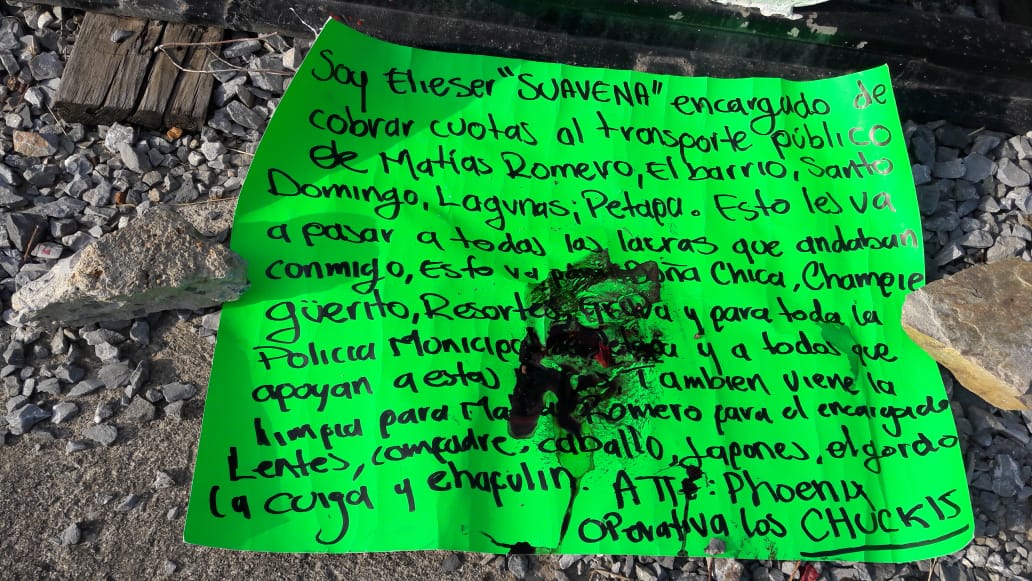 Soy Elieser "SUAVENA" encargado de
cobrar cuotas al transporte público
de Matías Romero, El barrio, Santo
Domingo, Lagunas; Petapa. Esto les va
a pasar a todas las lacras que andaban
conmigo, Esto va Doña Chica, Champie
güerito, Resortes y para toda la
Policia Municipa y a todos que
apoyan a estas Tambien viene la
limpia para Romero para el encargado
Lentes, compadre, caballo, Japones, el gordo
La coiga y chapulin. ATTE: Phoenix
operativa los CHUCKIS